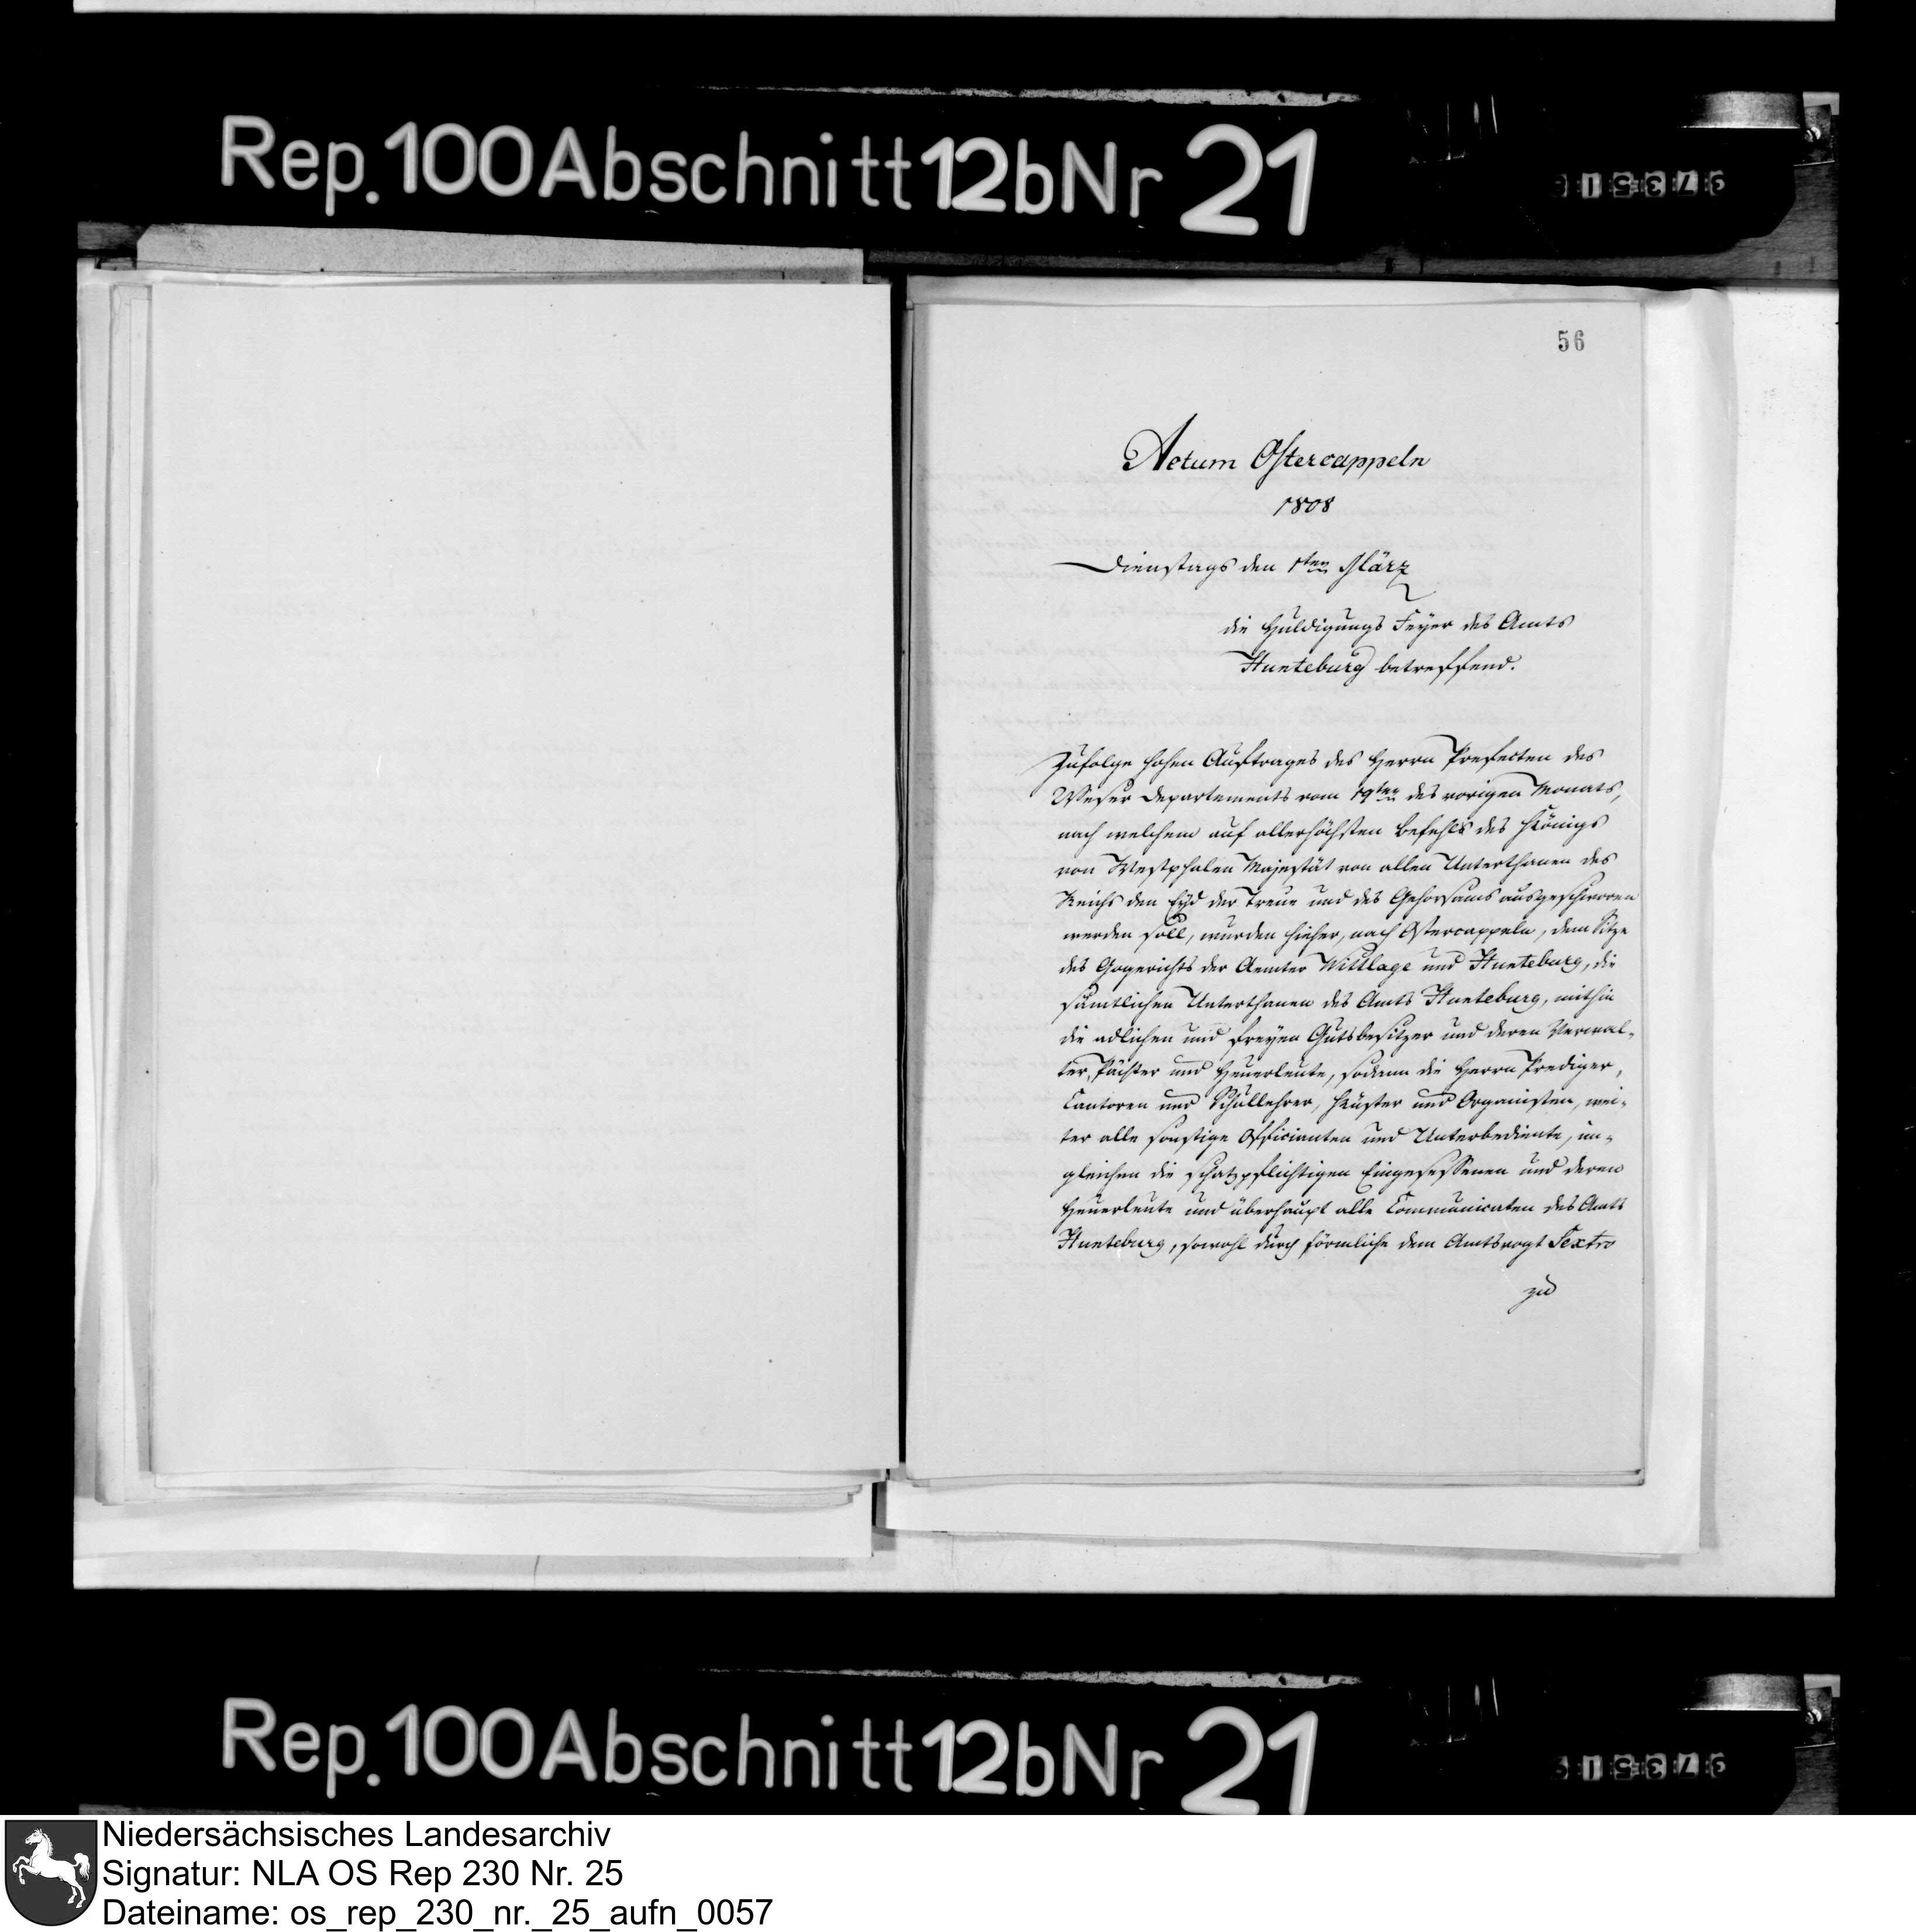 Rep. 100 Abschnitt 12b Nr 21
56
Actum Ostercappeln
1808
Dienstags den 1ten März
die Huldigungs Feyer des Amts
Hunteburg betreffend.
Zufolge hohen Auftrages des Herrn Prefecten des
Weser Departements vom 19ten des vorigen Monats,
nach welchem auf allerhöchsten Befehls des Königs
von Westphalen Majestät von allen Unterthanen des
Reichs den Eyd der Treue und des Gehorsams ausgeschworen
werden soll, wurden hieher, nach Ostercappeln, dem Sitze
des Gogerichts der Aemter Wittlage und Hunteburg, die
sämtlichen Unterthanen des Amts Hunteburg, mithin
die adlichen und freyen Gutsbesitzer und deren Verwal-
ter, Pächter und Heuerleute, sodann die Herrn Prediger,
Cantoren und Schullehrer, Küster und Organisten, wei-
ter alle sonstige Officianten und Unterbediente, im-
gleichen die schatzpflichtigen Eingesessenen und deren
Heuerleute und überhaupt alle Communicaten des Amts
Hunteburg, sowohl durch förmliche dem Amtsvogt Sextro
zu
Rep. 100 Abschnitt 12b Nr 21
Niedersächsisches Landesarchiv
Signatur: NLA OS Rep 230 Nr. 25
Dateiname: os_rep_230_nr._25_aufn_0057